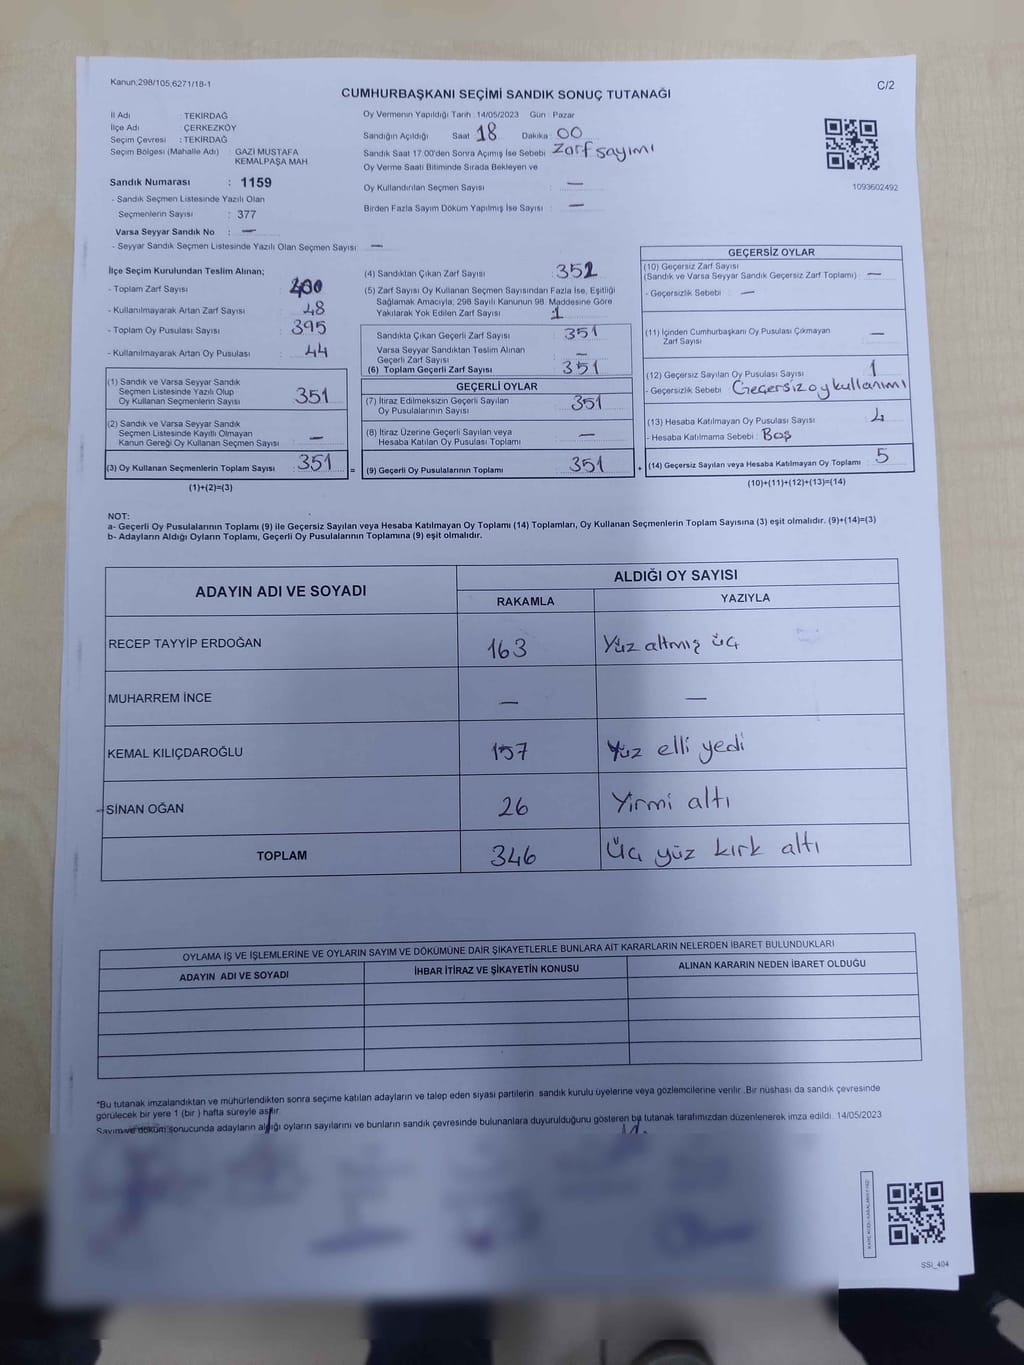 Kanun:298/105,6271/18-1
C/2
CUMHURBAŞKANI SEÇİMİ SANDIK SONUÇ TUTANAĞI
İl Adı : TEKİRDAĞ
İlçe Adı : ÇERKEZKÖY
Seçim Çevresi : TEKİRDAĞ
Seçim Bölgesi (Mahalle Adı) : GAZİ MUSTAFA
KEMALPAŞA MAH
Sandık Numarası : 1159
- Sandık Seçmen Listesinde Yazılı Olan
Seçmenlerin Sayısı : 377
Varsa Seyyar Sandık No : —
- Seyyar Sandık Seçmen Listesinde Yazılı Olan Seçmen Sayısı : —
Oy Vermenin Yapıldığı Tarih : 14/05/2023 Gün : Pazar
Sandığın Açıldığı Saat 18 Dakika 00
Sandık Saat 17:00'den Sonra Açımış İse Sebebi : Zarf sayımı
Oy Verme Saati Bitiminde Sırada Bekleyen ve
Oy Kullandırılan Seçmen Sayısı : —
Birden Fazla Sayım Döküm Yapılmış İse Sayısı : —
1093602492
İlçe Seçim Kurulundan Teslim Alınan;
- Toplam Zarf Sayısı : 400
- Kullanılmayarak Artan Zarf Sayısı : 48
- Toplam Oy Pusulası Sayısı : 395
- Kullanılmayarak Artan Oy Pusulası : 44
(1) Sandık ve Varsa Seyyar Sandık
Seçmen Listesinde Yazılı Olup
Oy Kullanan Seçmenlerin Sayısı : 351
(2) Sandık ve Varsa Seyyar Sandık
Seçmen Listesinde Kayıtlı Olmayan
Kanun Gereği Oy Kullanan Seçmen Sayısı : —
(3) Oy Kullanan Seçmenlerin Toplam Sayısı : 351
(1)+(2)=(3)
(4) Sandıktan Çıkan Zarf Sayısı : 352
(5) Zarf Sayısı Oy Kullanan Seçmen Sayısından Fazla İse, Eşitliği
Sağlamak Amacıyla; 298 Sayılı Kanunun 98. Maddesine Göre
Yakılarak Yok Edilen Zarf Sayısı : 1
Sandıkta Çıkan Geçerli Zarf Sayısı : 351
Varsa Seyyar Sandıktan Teslim Alınan
Geçerli Zarf Sayısı : —
(6) Toplam Geçerli Zarf Sayısı : 351
GEÇERLİ OYLAR
(7) İtiraz Edilmeksizin Geçerli Sayılan
Oy Pusulalarının Sayısı : 351
(8) İtiraz Üzerine Geçerli Sayılan veya
Hesaba Katılan Oy Pusulası Toplamı : —
= (9) Geçerli Oy Pusulalarının Toplamı : 351
GEÇERSİZ OYLAR
(10) Geçersiz Zarf Sayısı
(Sandık ve Varsa Seyyar Sandık Geçersiz Zarf Toplamı) : —
- Geçersizlik Sebebi : —
(11) İçinden Cumhurbaşkanı Oy Pusulası Çıkmayan
Zarf Sayısı : —
(12) Geçersiz Sayılan Oy Pusulası Sayısı : 1
- Geçersizlik Sebebi : Geçersiz oy kullanımı
(13) Hesaba Katılmayan Oy Pusulası Sayısı : 4
- Hesaba Katılmama Sebebi : Boş
+ (14) Geçersiz Sayılan veya Hesaba Katılmayan Oy Toplamı : 5
(10)+(11)+(12)+(13)=(14)
NOT:
a- Geçerli Oy Pusulalarının Toplamı (9) ile Geçersiz Sayılan veya Hesaba Katılmayan Oy Toplamı (14) Toplamları, Oy Kullanan Seçmenlerin Toplam Sayısına (3) eşit olmalıdır. (9)+(14)=(3)
b- Adayların Aldığı Oyların Toplamı, Geçerli Oy Pusulalarının Toplamına (9) eşit olmalıdır.
ADAYIN ADI VE SOYADI
ALDIĞI OY SAYISI
RAKAMLA YAZIYLA
RECEP TAYYİP ERDOĞAN 163 Yüz altmış üç
MUHARREM İNCE — —
KEMAL KILIÇDAROĞLU 157 Yüz elli yedi
SİNAN OĞAN 26 Yirmi altı
TOPLAM 346 Üç yüz kırk altı
OYLAMA İŞ VE İŞLEMLERİNE VE OYLARIN SAYIM VE DÖKÜMÜNE DAİR ŞİKAYETLERLE BUNLARA AİT KARARLARIN NELERDEN İBARET BULUNDUKLARI
ADAYIN ADI VE SOYADI İHBAR İTİRAZ VE ŞİKAYETİN KONUSU ALINAN KARARIN NEDEN İBARET OLDUĞU
*Bu tutanak imzalandıktan ve mühürlendikten sonra seçime katılan adayların ve talep eden siyasi partilerin sandık kurulu üyelerine veya gözlemcilerine verilir .Bir nüshası da sandık çevresinde
görülecek bir yere 1 (bir ) hafta süreyle asılır.
Sayım ve döküm sonucunda adayların aldığı oyların sayılarını ve bunların sandık çevresinde bulunanlara duyurulduğunu gösteren bu tutanak tarafımızdan düzenlenerek imza edildi. 14/05/2023
SSİ_404